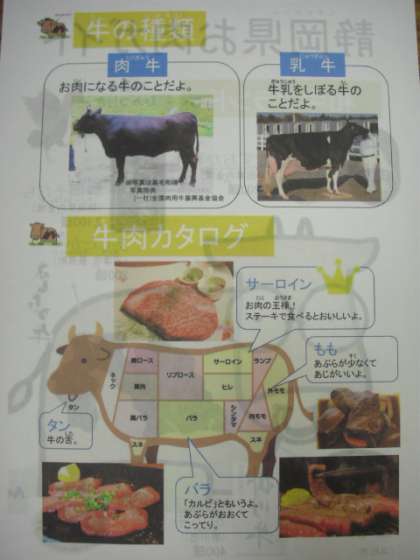 牛の種類
肉牛
お肉になる牛のことだよ。
乳牛
牛乳をしぼる牛の
ことだよ。
写真提供
(一社)全国肉用牛振興基金協会
牛肉カタログ
サーロイン
お肉の王様!
ステーキで食べるとおいしいよ。
もも
あぶらが少なくて
あじがいいよ。
肩ロース
リブロース
サーロイン
ランプ
ネック
ヒレ
外モモ
肩バラ
バラ
シンタマ
内モモ
スネ
スネ
タン
タン
牛の舌。
バラ
「カルビ」ともいうよ。
あぶらがおおくて
こってり。